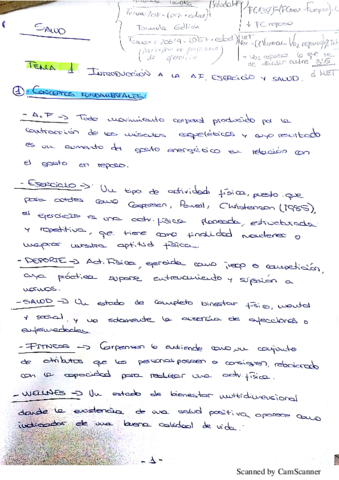 SALUD
TEMA 1 INTRODUCCIÓN A LA AF, EJERCICIO Y SALUD.
① - CONCEPTOS FUNDAMENTALES
- A.F → Todo movimiento corporal producido por la
contracción de los músculos esqueléticos y cuyo resultado
es un aumento del gasto energético en relación con
el gasto en reposo.
- EJERCICIO → Un tipo de actividad física, puesto que
para autores como Caspersen, Powell, Christenson (1985),
el ejercicio es una activ. física planeada, estructurada
y repetitiva, que tiene como finalidad mantener o
mejorar nuestra aptitud física.
- DEPORTE → Act. Física, ejercida como juego o competición,
cuya práctica supone entrenamiento y sujeción a
normas.
- SALUD → Un estado de completo bienestar físico, mental
y social, y no solamente la ausencia de afecciones o
enfermedades.
- FITNESS → Carpersen lo entiende como un conjunto
de atributos que las personas poseen o consiguen, relacionado
con la capacidad para realizar una activ. física.
- WELLNES → Un estado de bienestar multidimensional
donde la existencia de una salud positiva aparece como
indicador de una buena calidad de vida.
- 1 -
Scanned by CamScanner